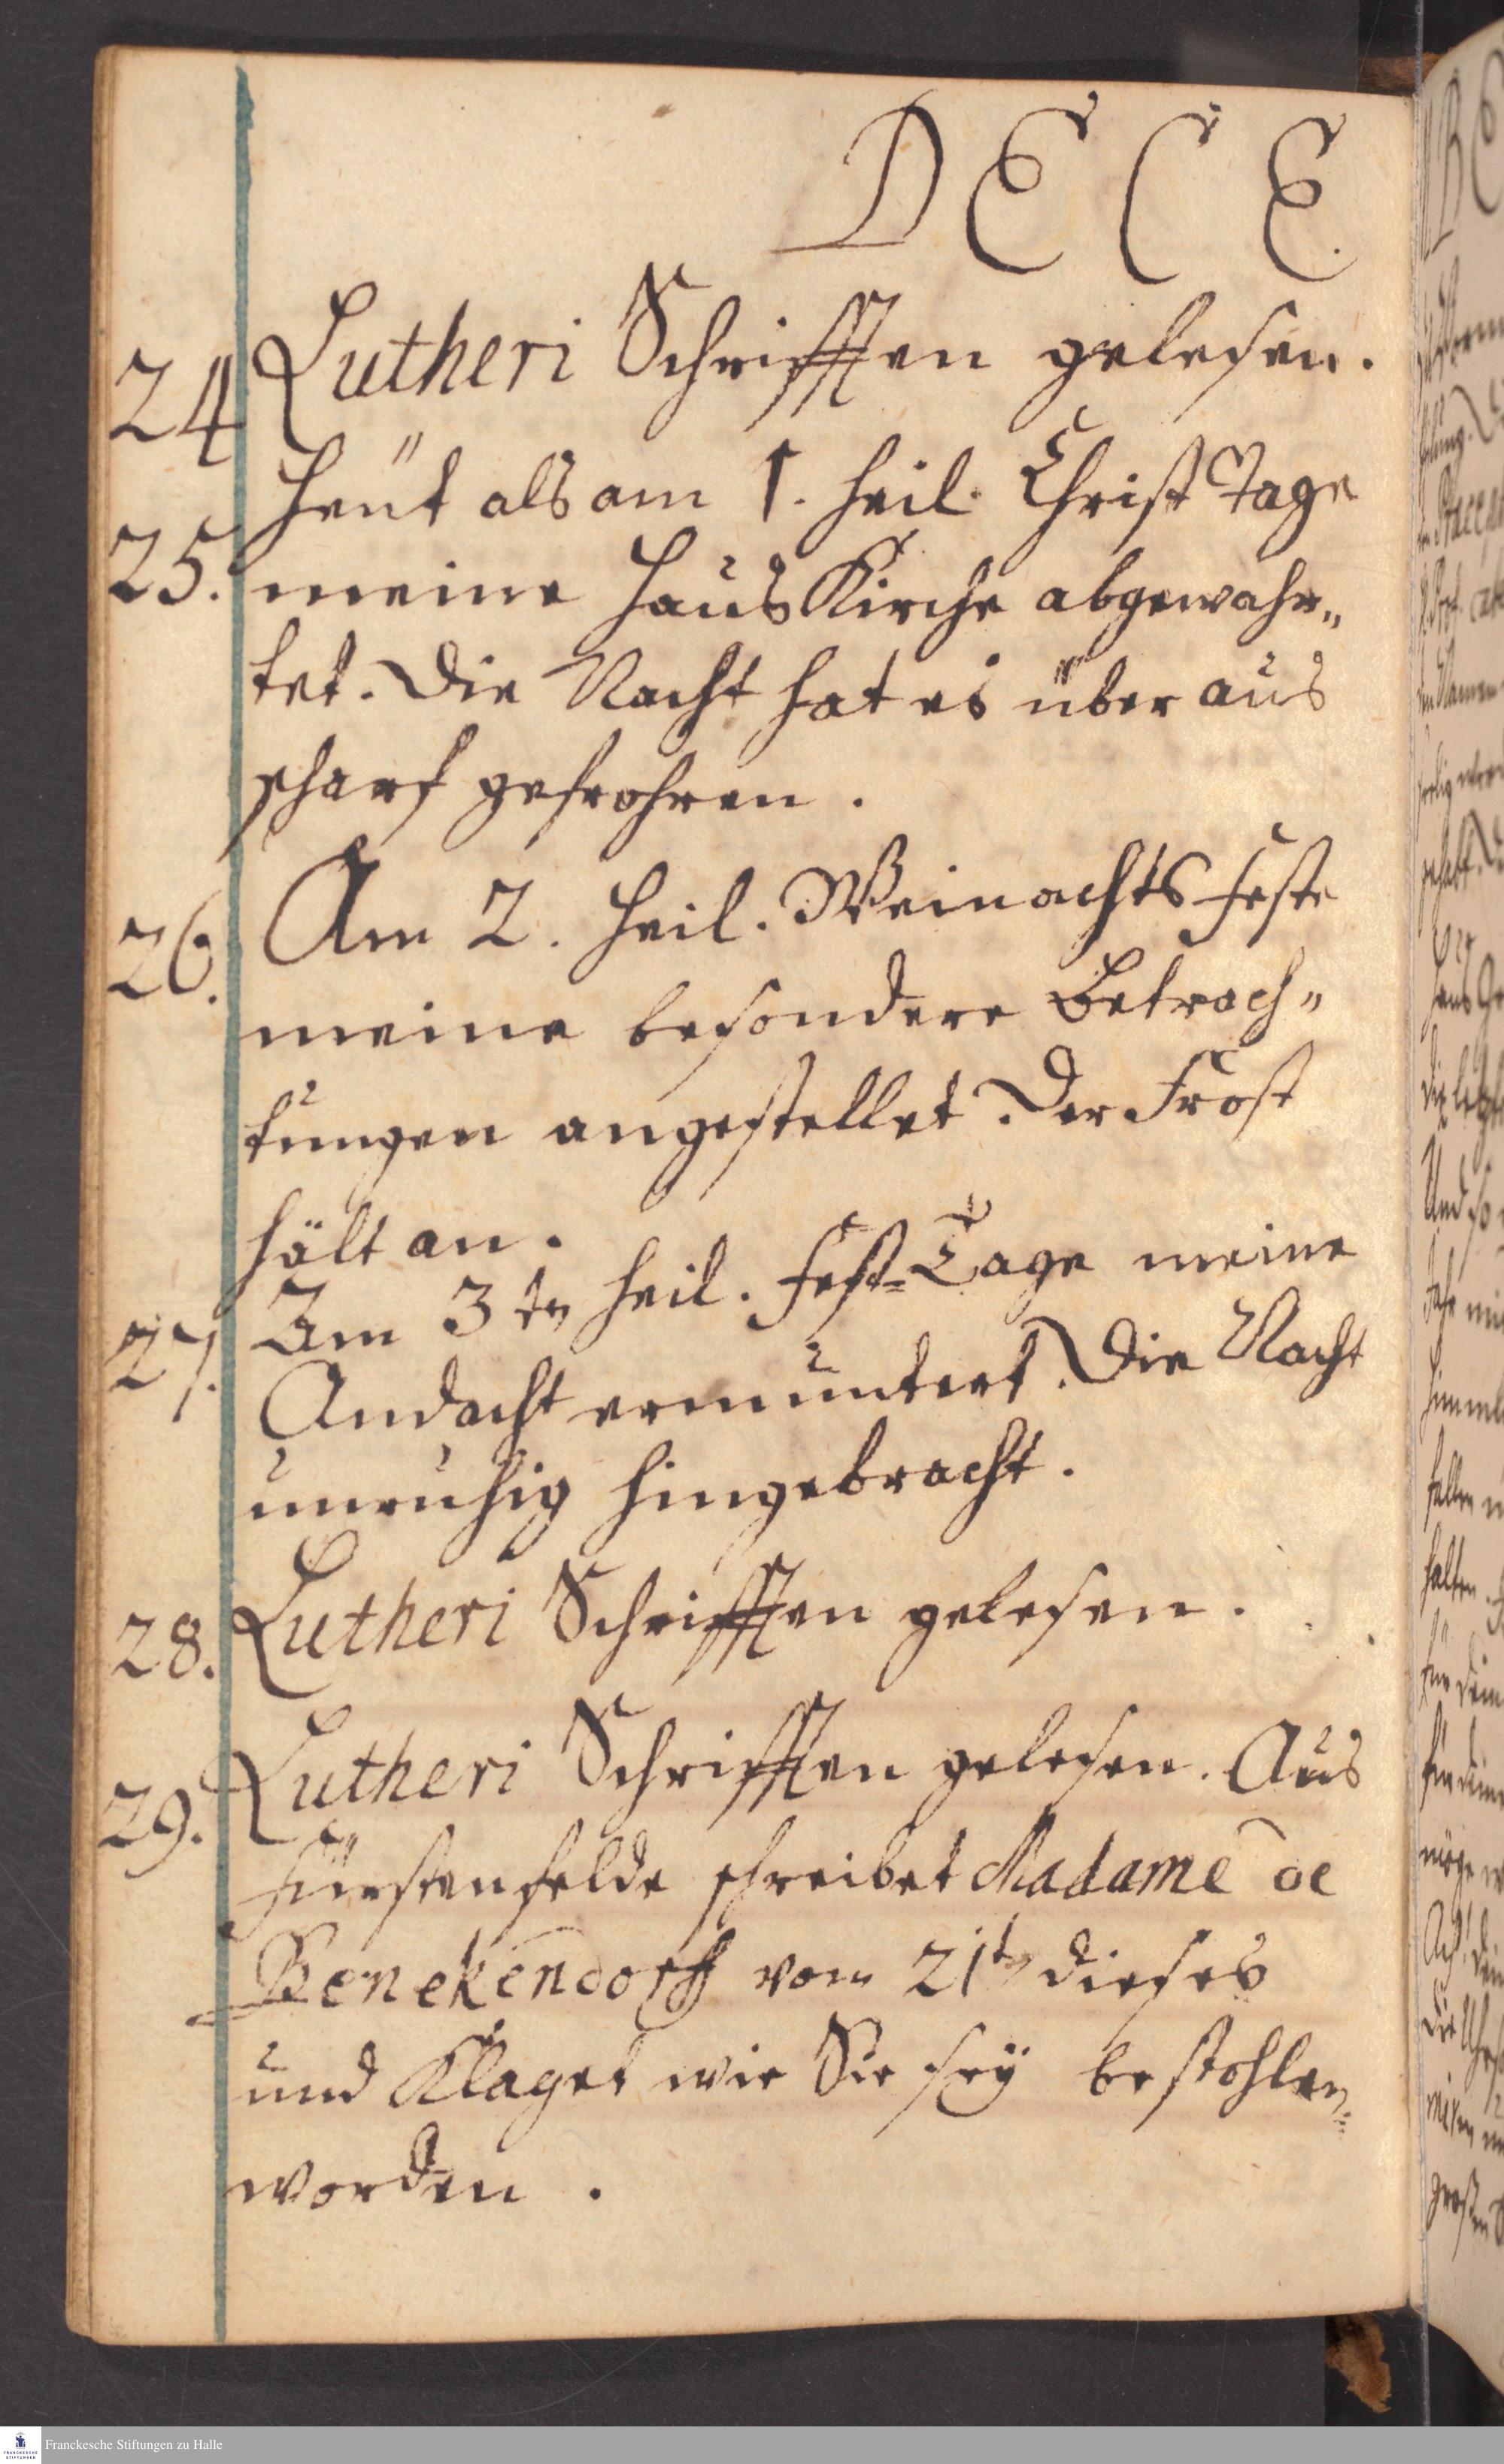 DECE
24 Lutheri Schrifften gelesen.
Heüt als am 1. Heil. Christ Tage
25. meine HausKirche abgewahr„
tet. Die Nacht hat es über aus
scharf gefrohren.
26. Am 2. Heil. Weinachts Feste
meine besondere Betrach„
tungen angestellet. Der Frost
hält an.
27. Am 3ten Heil. Fest-Tage meine
Andacht ermuntert. Die Nacht
unruhig hingebracht.
28. Lutheri Schrifften gelesen.
29. Lutheri Schrifften gelesen. Aus
Fürstenfelde schreibet Madame de
Benekendorff vom 21ten dieses
und Klaget wie Sie seÿ bestohlen
worden.
Franckesche Stiftungen zu Halle